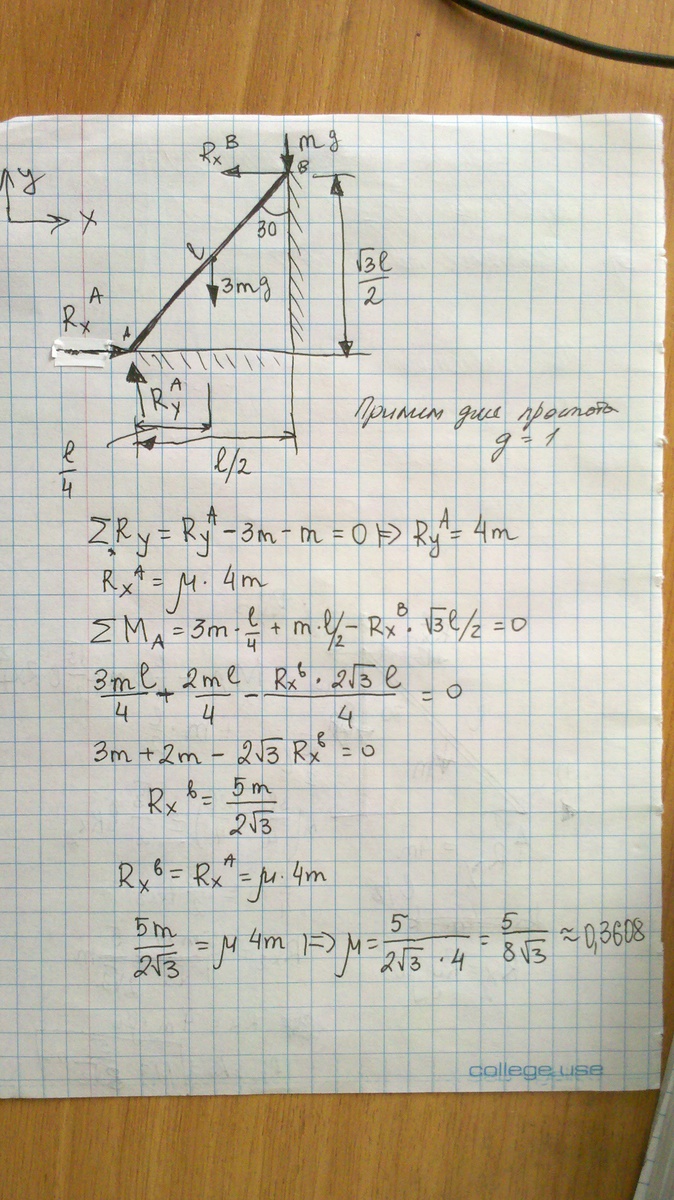 mg
Rₓᴮ
B
y
x
30
l
3mg
√3l/2
Rₓᴬ
A
R_yᴬ
l/4
l/2
Примем для простоты
g = 1
ΣR_y = R_yᴬ − 3m − m = 0 ⇒ R_yᴬ = 4m
Rₓᴬ = μ · 4m
ΣM_A = 3m · l/4 + m · l/2 − Rₓᴮ · √3l/2 = 0
3ml/4 + 2ml/4 − Rₓᴮ · 2√3 l/4 = 0
3m + 2m − 2√3 Rₓᴮ = 0
Rₓᴮ = 5m/2√3
Rₓᴮ = Rₓᴬ = μ · 4m
5m/2√3 = μ 4m ⇒ μ = 5/2√3 · 4 = 5/8√3 ≈ 0,3608
college use